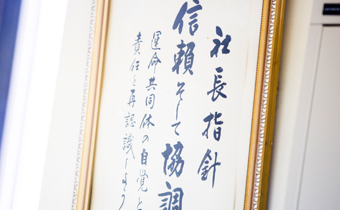 社長指針
信頼そして協調
運命共同体の自覚と
責任と再認識しよう